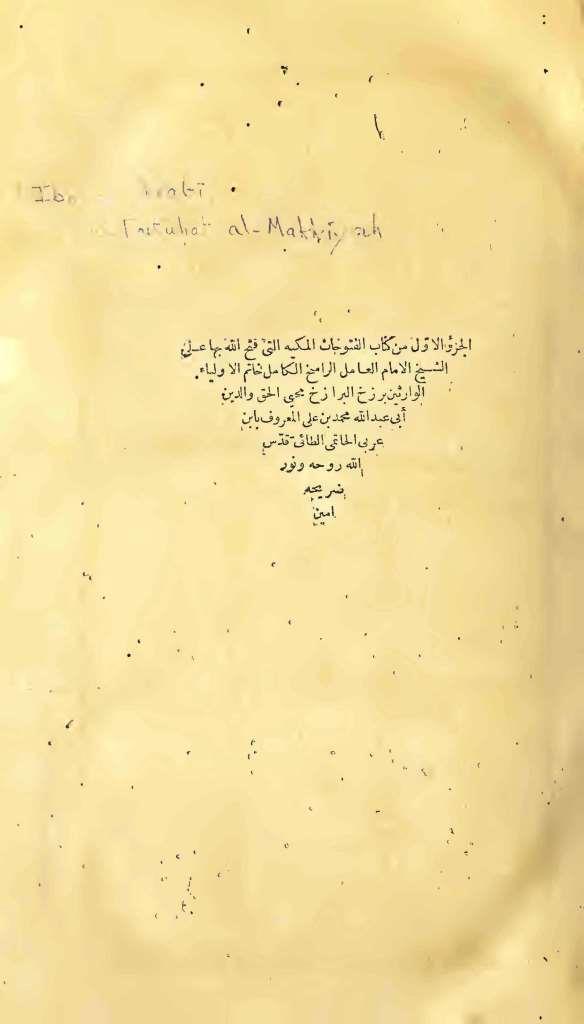 al-Makkiyah
الجزؤ الاوّل من كتاب الفتوحات المكيه التى فتح الله بها على
الشيخ الامام العامل الراسخ الكامل خاتم الاولياء
الوارثين برزخ البرازخ محيى الحق والدين
أبى عبدالله محمد بن على المعروف بابن
عربى الحاتمى الطائى قدّس
الله روحه ونور
ضريحه
امين